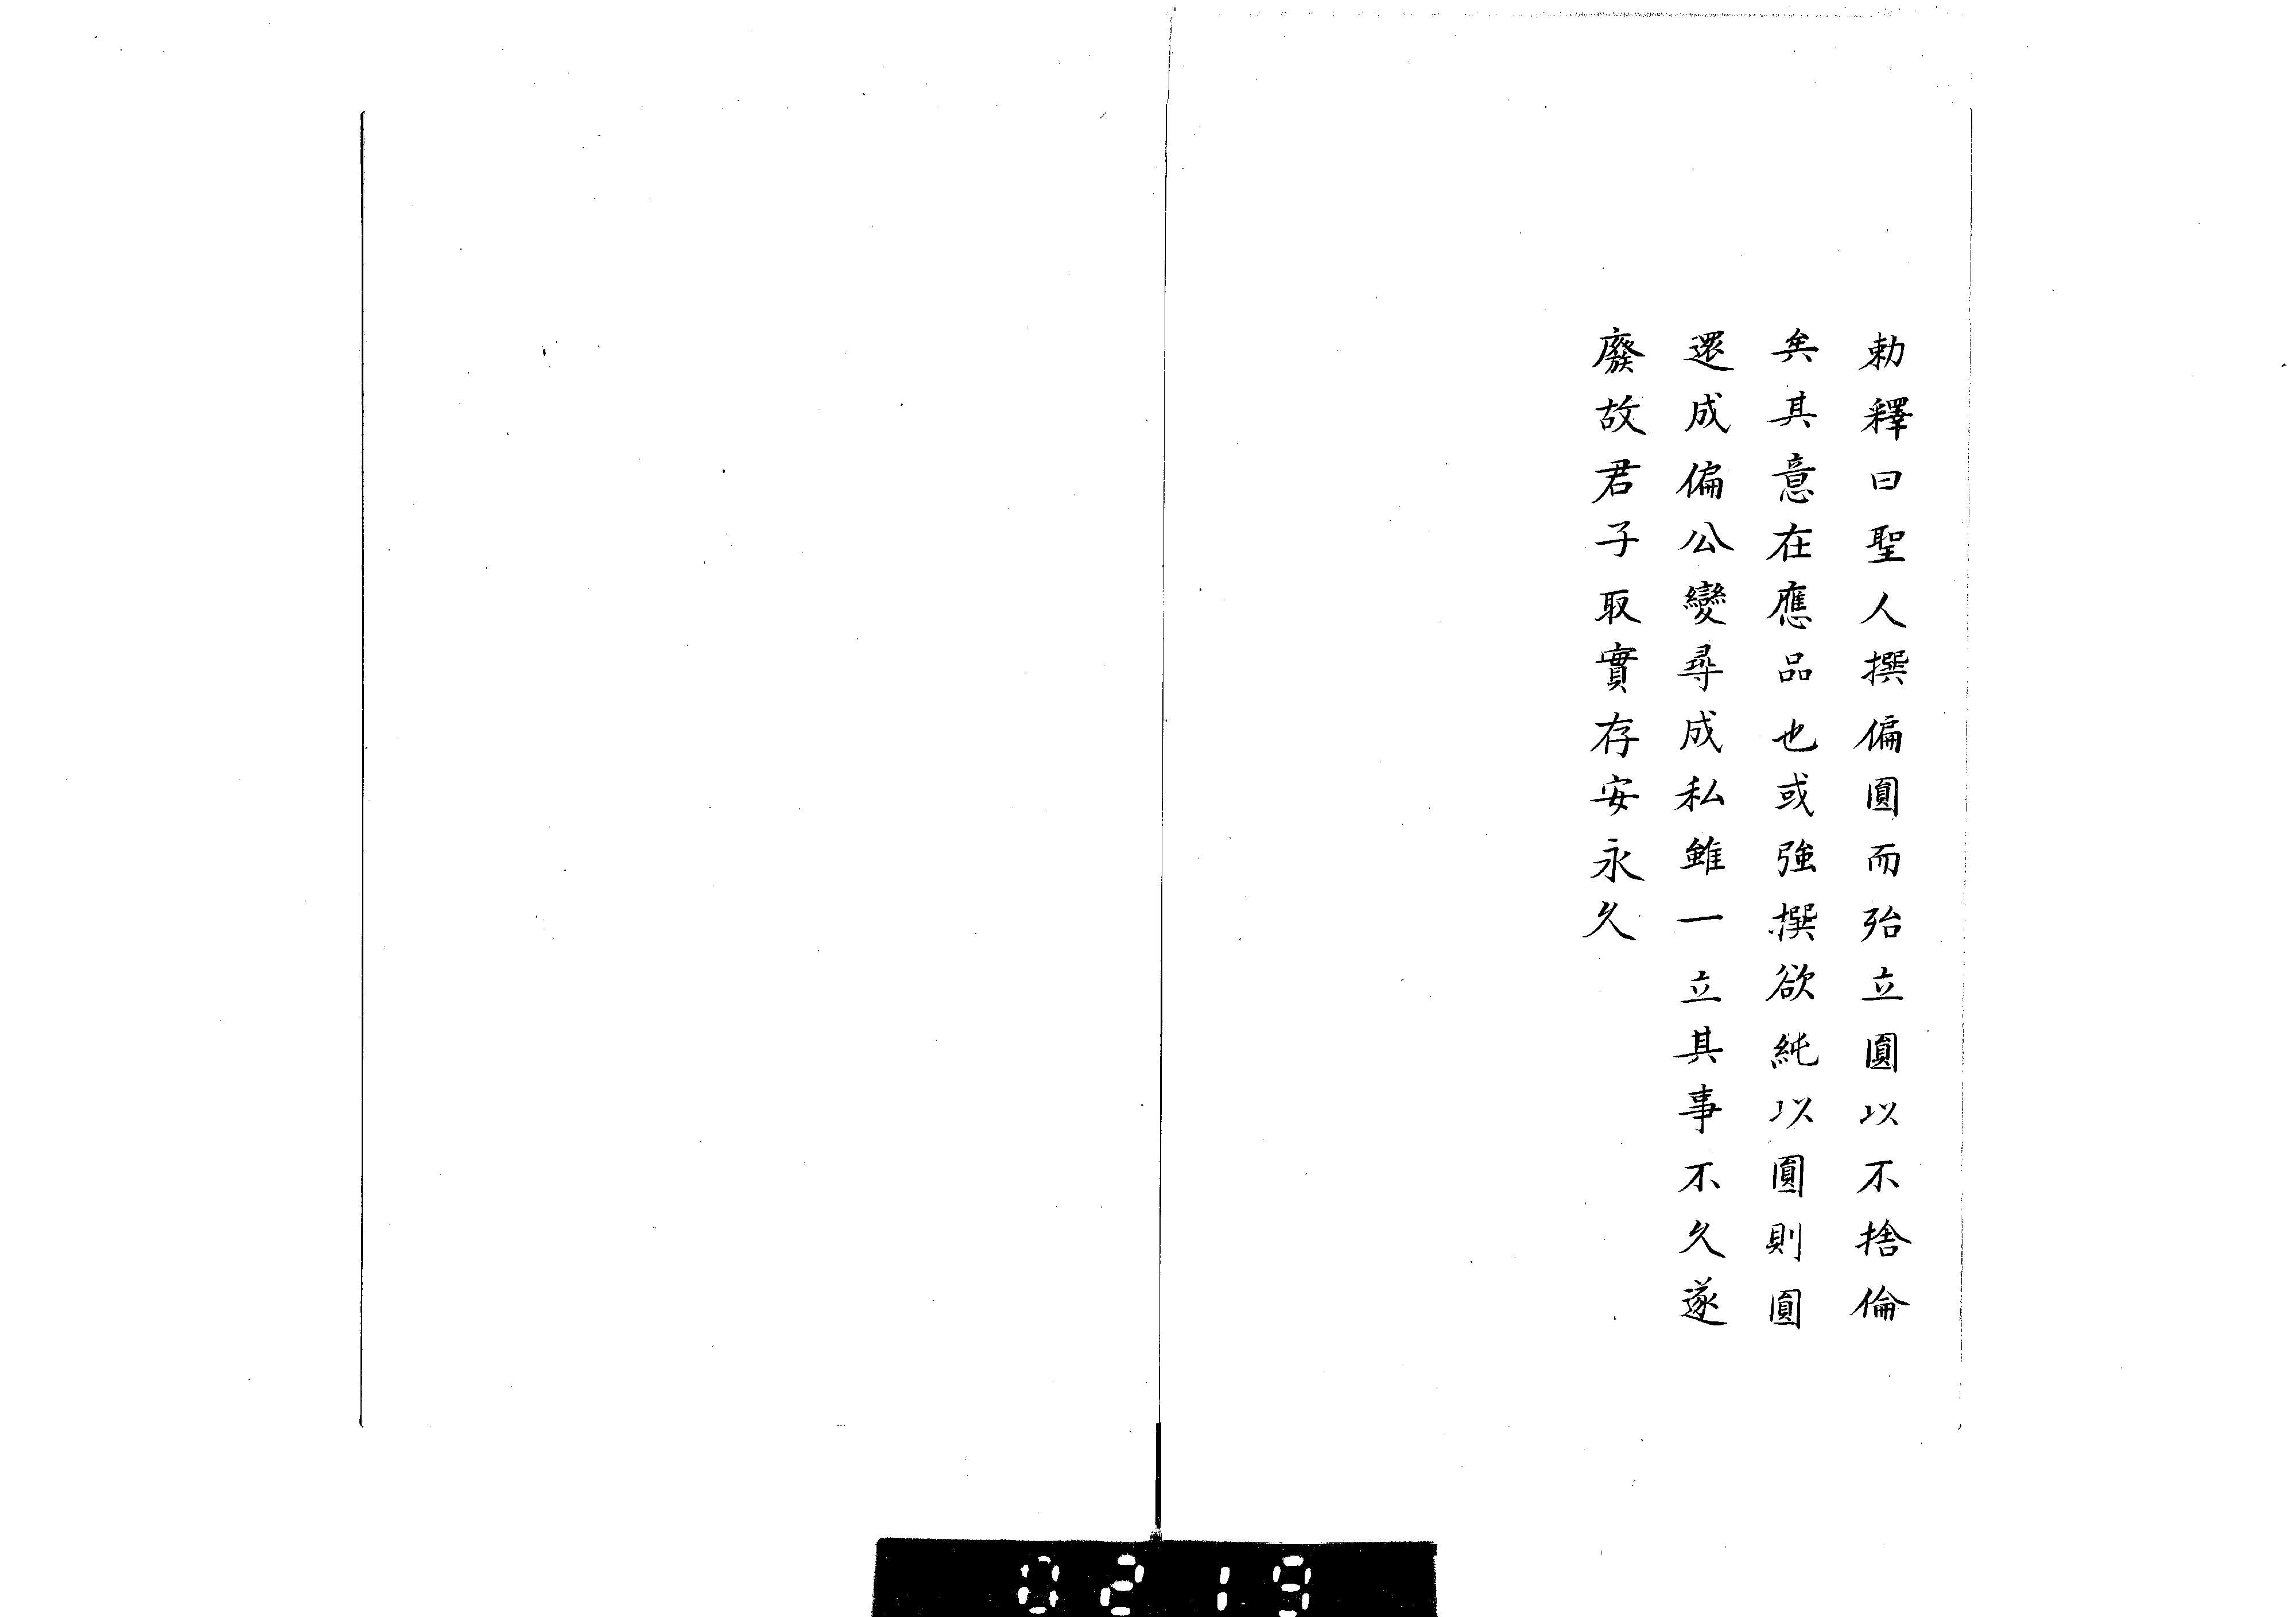 勅釋曰聖人撰偏圓而殆立圓以不捨倫
矣其意在應品也或強撰欲純以圓則圓
還成偏公變尋成私雖一立其事不久遂
廢故君子取實存安永久
0219